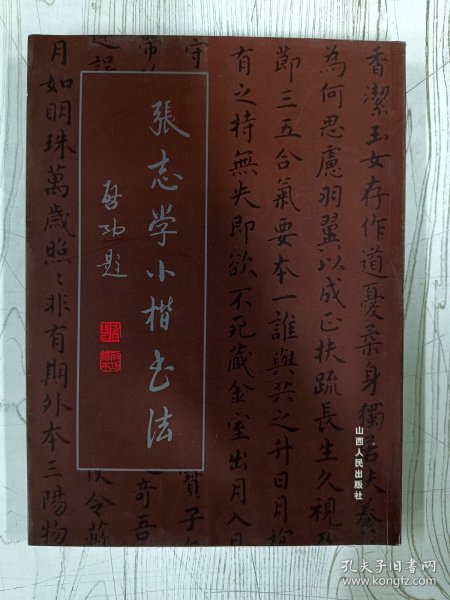 張志学小楷书法
启功題
香潔玉女存作道憂柔身獨居夫養
為何思慮羽翼以成正扶疏長生久視乃
節三五合氣要本一誰與共之升日月
有之持無失即欲不死藏金室出月入
守
賛子
带
奇吾
月如明珠萬歲照照非有期外本三陽物
山西人民出版社
孔夫子旧书网
www.kongfz.com